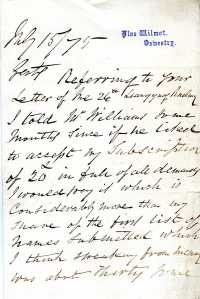 July 15/75
Plas Wilmot,
Oswestry.
Gents
Referring to your
Letter of the 26th Railway
I told Mr Williams some
Months since if he liked
to accept my Subscription
of 20£ in full of all demands
I would pay it which is
Considerably more than my
share of the first list of
Names Submitted which
I think speaking from memory
was about thirty